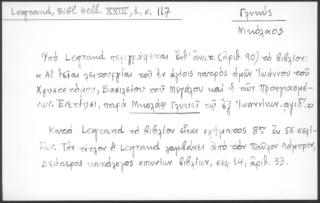 Legrand, Bibl. Hell. XVIII, 2, σ. 127
Γλυκὺς
Νικόλαος
Ὑπὸ Legrand περιγράφεται ἐνθ' ἀνωτ. (ἀριθ. 90) τὸ βιβλίον:
« Αἱ θεῖαι λειτουργίαι τοῦ ἐν ἁγίοις πατρὸς ἡμῶν Ἰωάννου τοῦ
Χρυσοστόμου, Βασιλείου τοῦ Μεγάλου καὶ ἡ τῶν Προηγιασμέ-
νων. Ἐνετίησι, παρὰ Νικολάῳ Γλυκεῖ τῷ ἐξ Ἰωαννίνων.
Κατὰ Legrand τὸ βιβλίον εἶναι σχήματος 8ον ἐκ 56 σελί-
δων. Τὸν τίτλον ὁ Legrand λαμβάνει ἀπὸ τὸν Παῦλον Λάμπρον,
Δεύτερος κατάλογος σπανίων βιβλίων, σελ. 14, ἀριθ. 33.